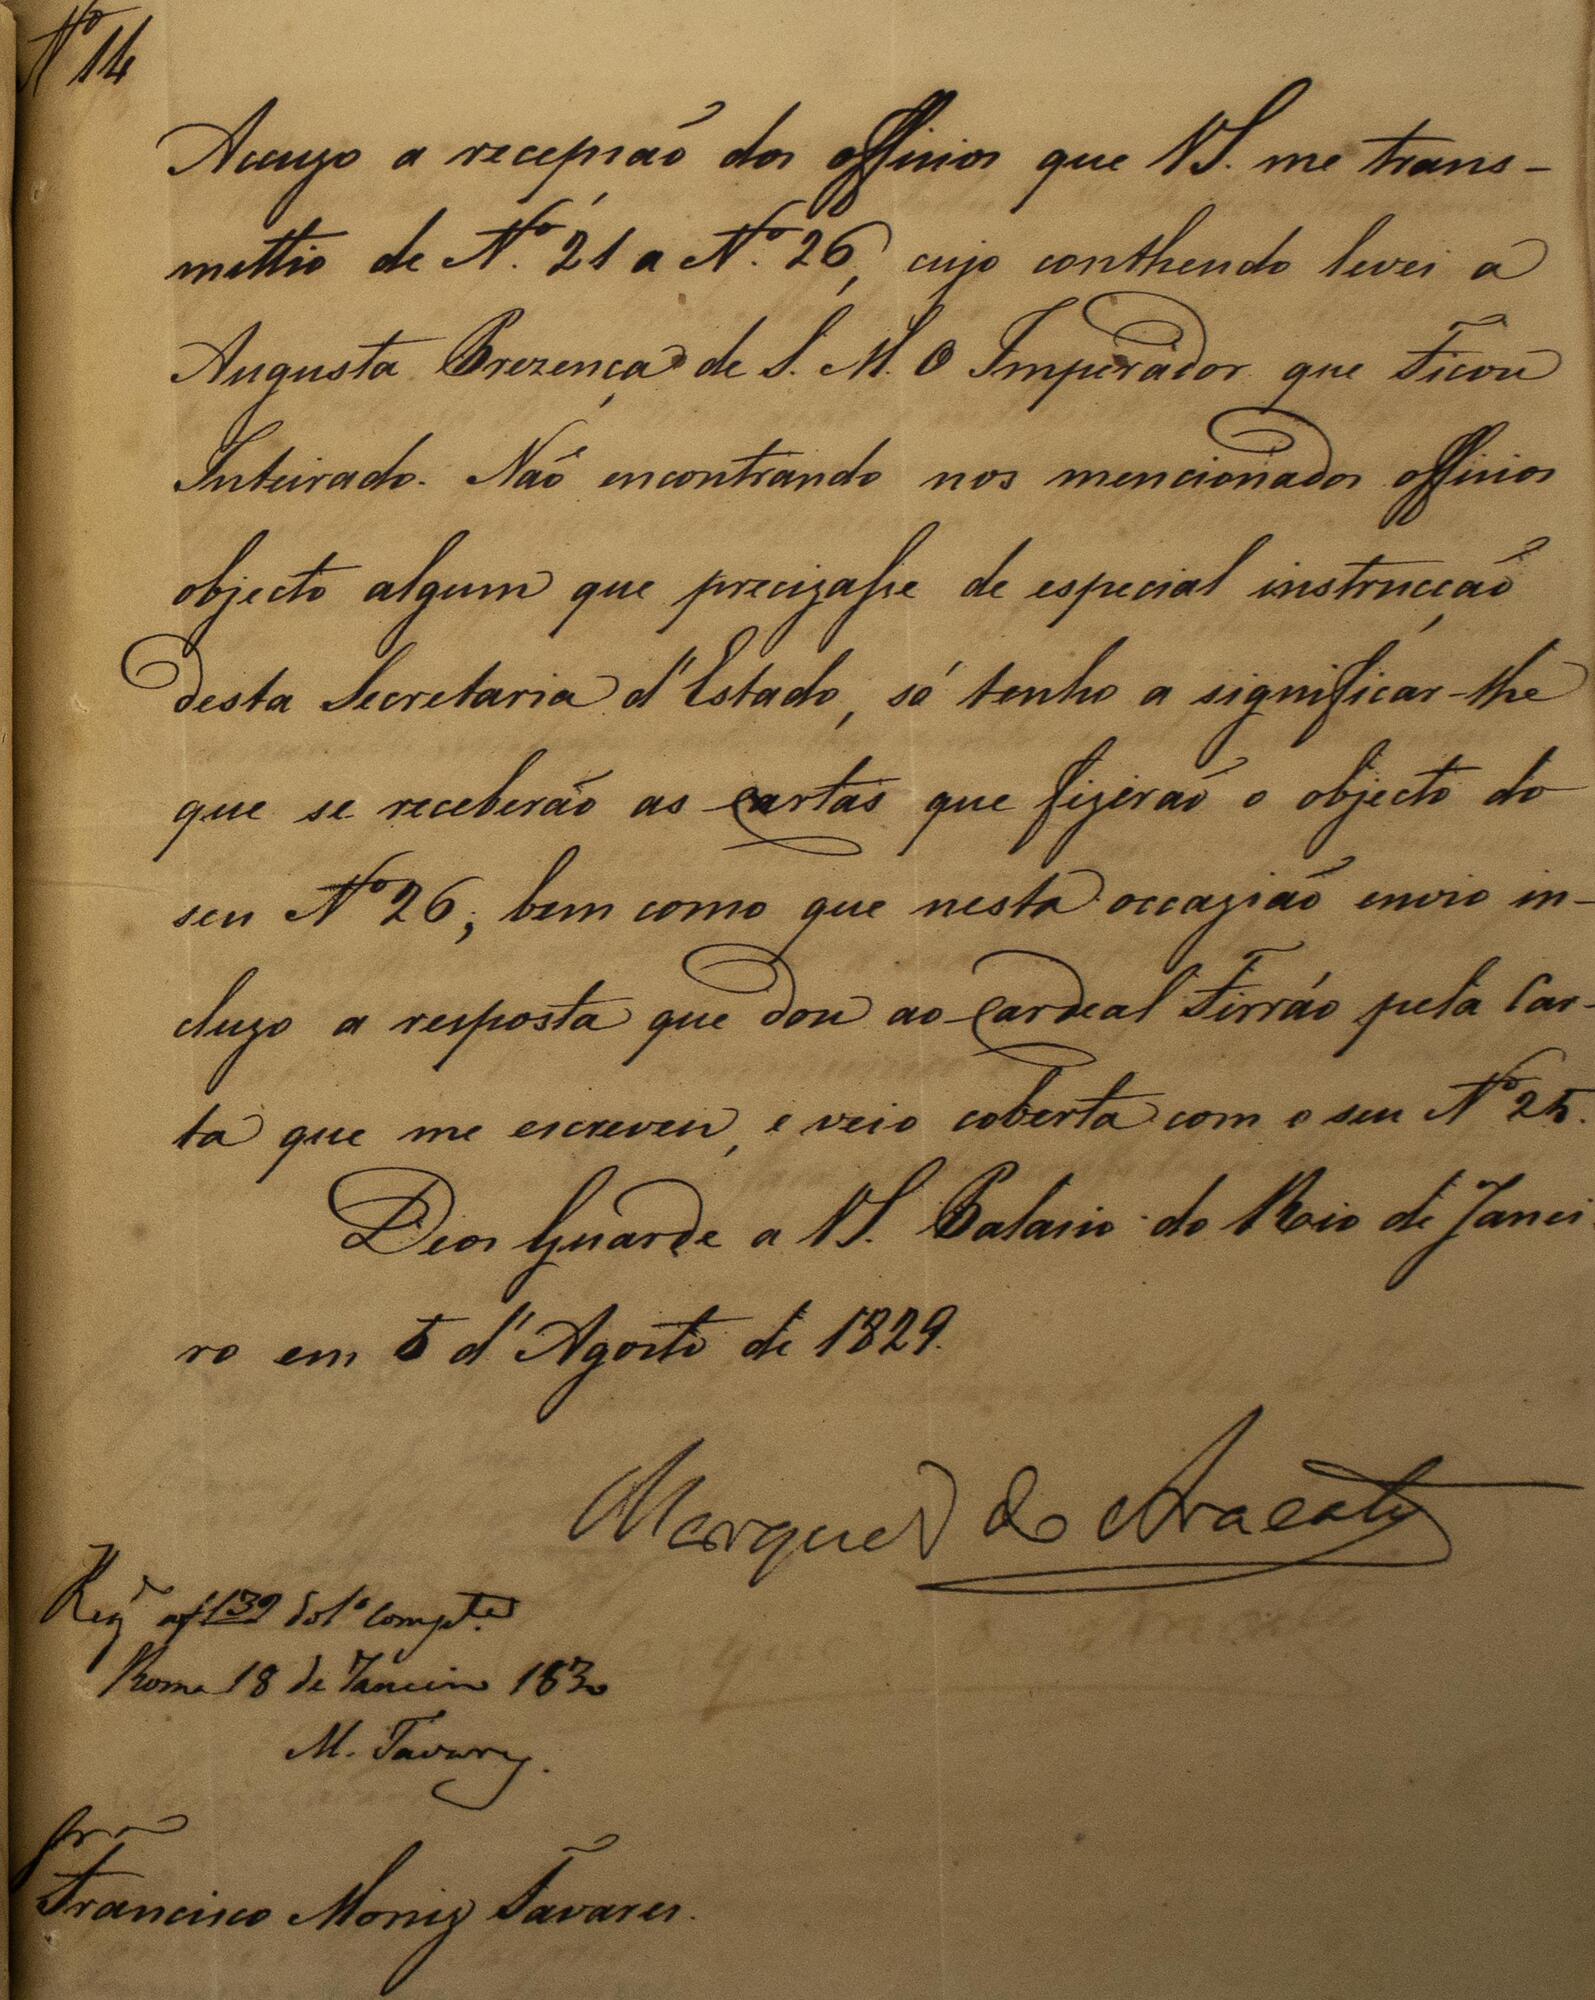 Nº 14
Accuzo a recepsão dos officios que VS. me trans-
mettio de Nº. 21 a Nº. 26, cujo conthendo levei a
Augusta Prezença de S. M. O Imperador que Ficou
Inteirado. Não encontrando nos mencionados officios
objecto algum que precizasse de especial instrucção
desta Secretaria d'Estado, só tenho a significar-lhe
que se receberão as cartas que fizerão o objecto do
seu Nº 26; bem como que nesta occazião envio in-
cluzo a resposta que dou ao Cardeal Firrão pela Car-
ta que me escreveu, e veio coberta com o seu Nº 25.
Deos Guarde a VS. Palacio do Rio de Janei
ro em 5 d'Agosto de 1829.
Marquez de Aracaty
Reg. a f 139 do Lº compte.
Roma 18 de Janeiro 1830
M. Tavares.
Snr.
Francisco Moniz Tavares.